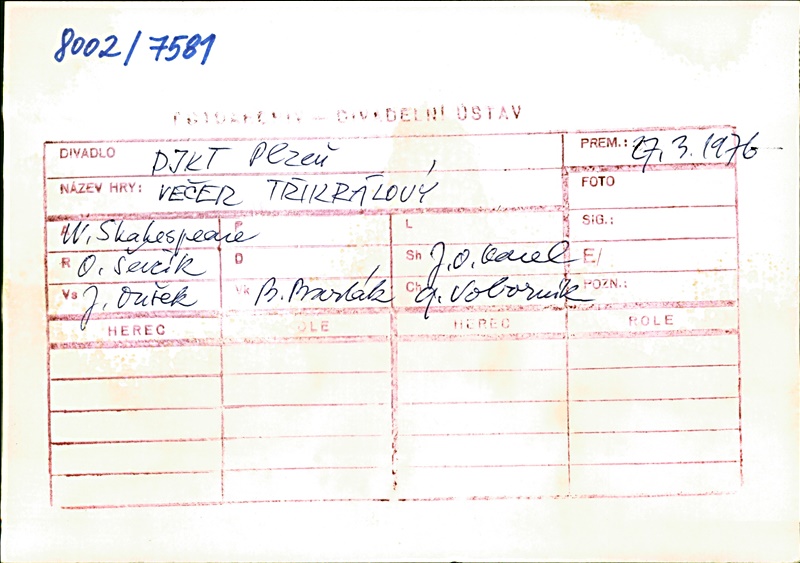 8002/7581
FOTOARCHIV – DIVADELNÍ ÚSTAV
DIVADLO DJKT Plzeň PREM.: 27.3.1976
NÁZEV HRY: VEČER TŘÍKRÁLOVÝ FOTO
W. Shakespeare P L SIG.:
R O. Ševčík D Sh J.O. Karel E/
Vs J. Dušek Vk B. Barták Ch G. Voborník POZN.:
HEREC ROLE HEREC ROLE